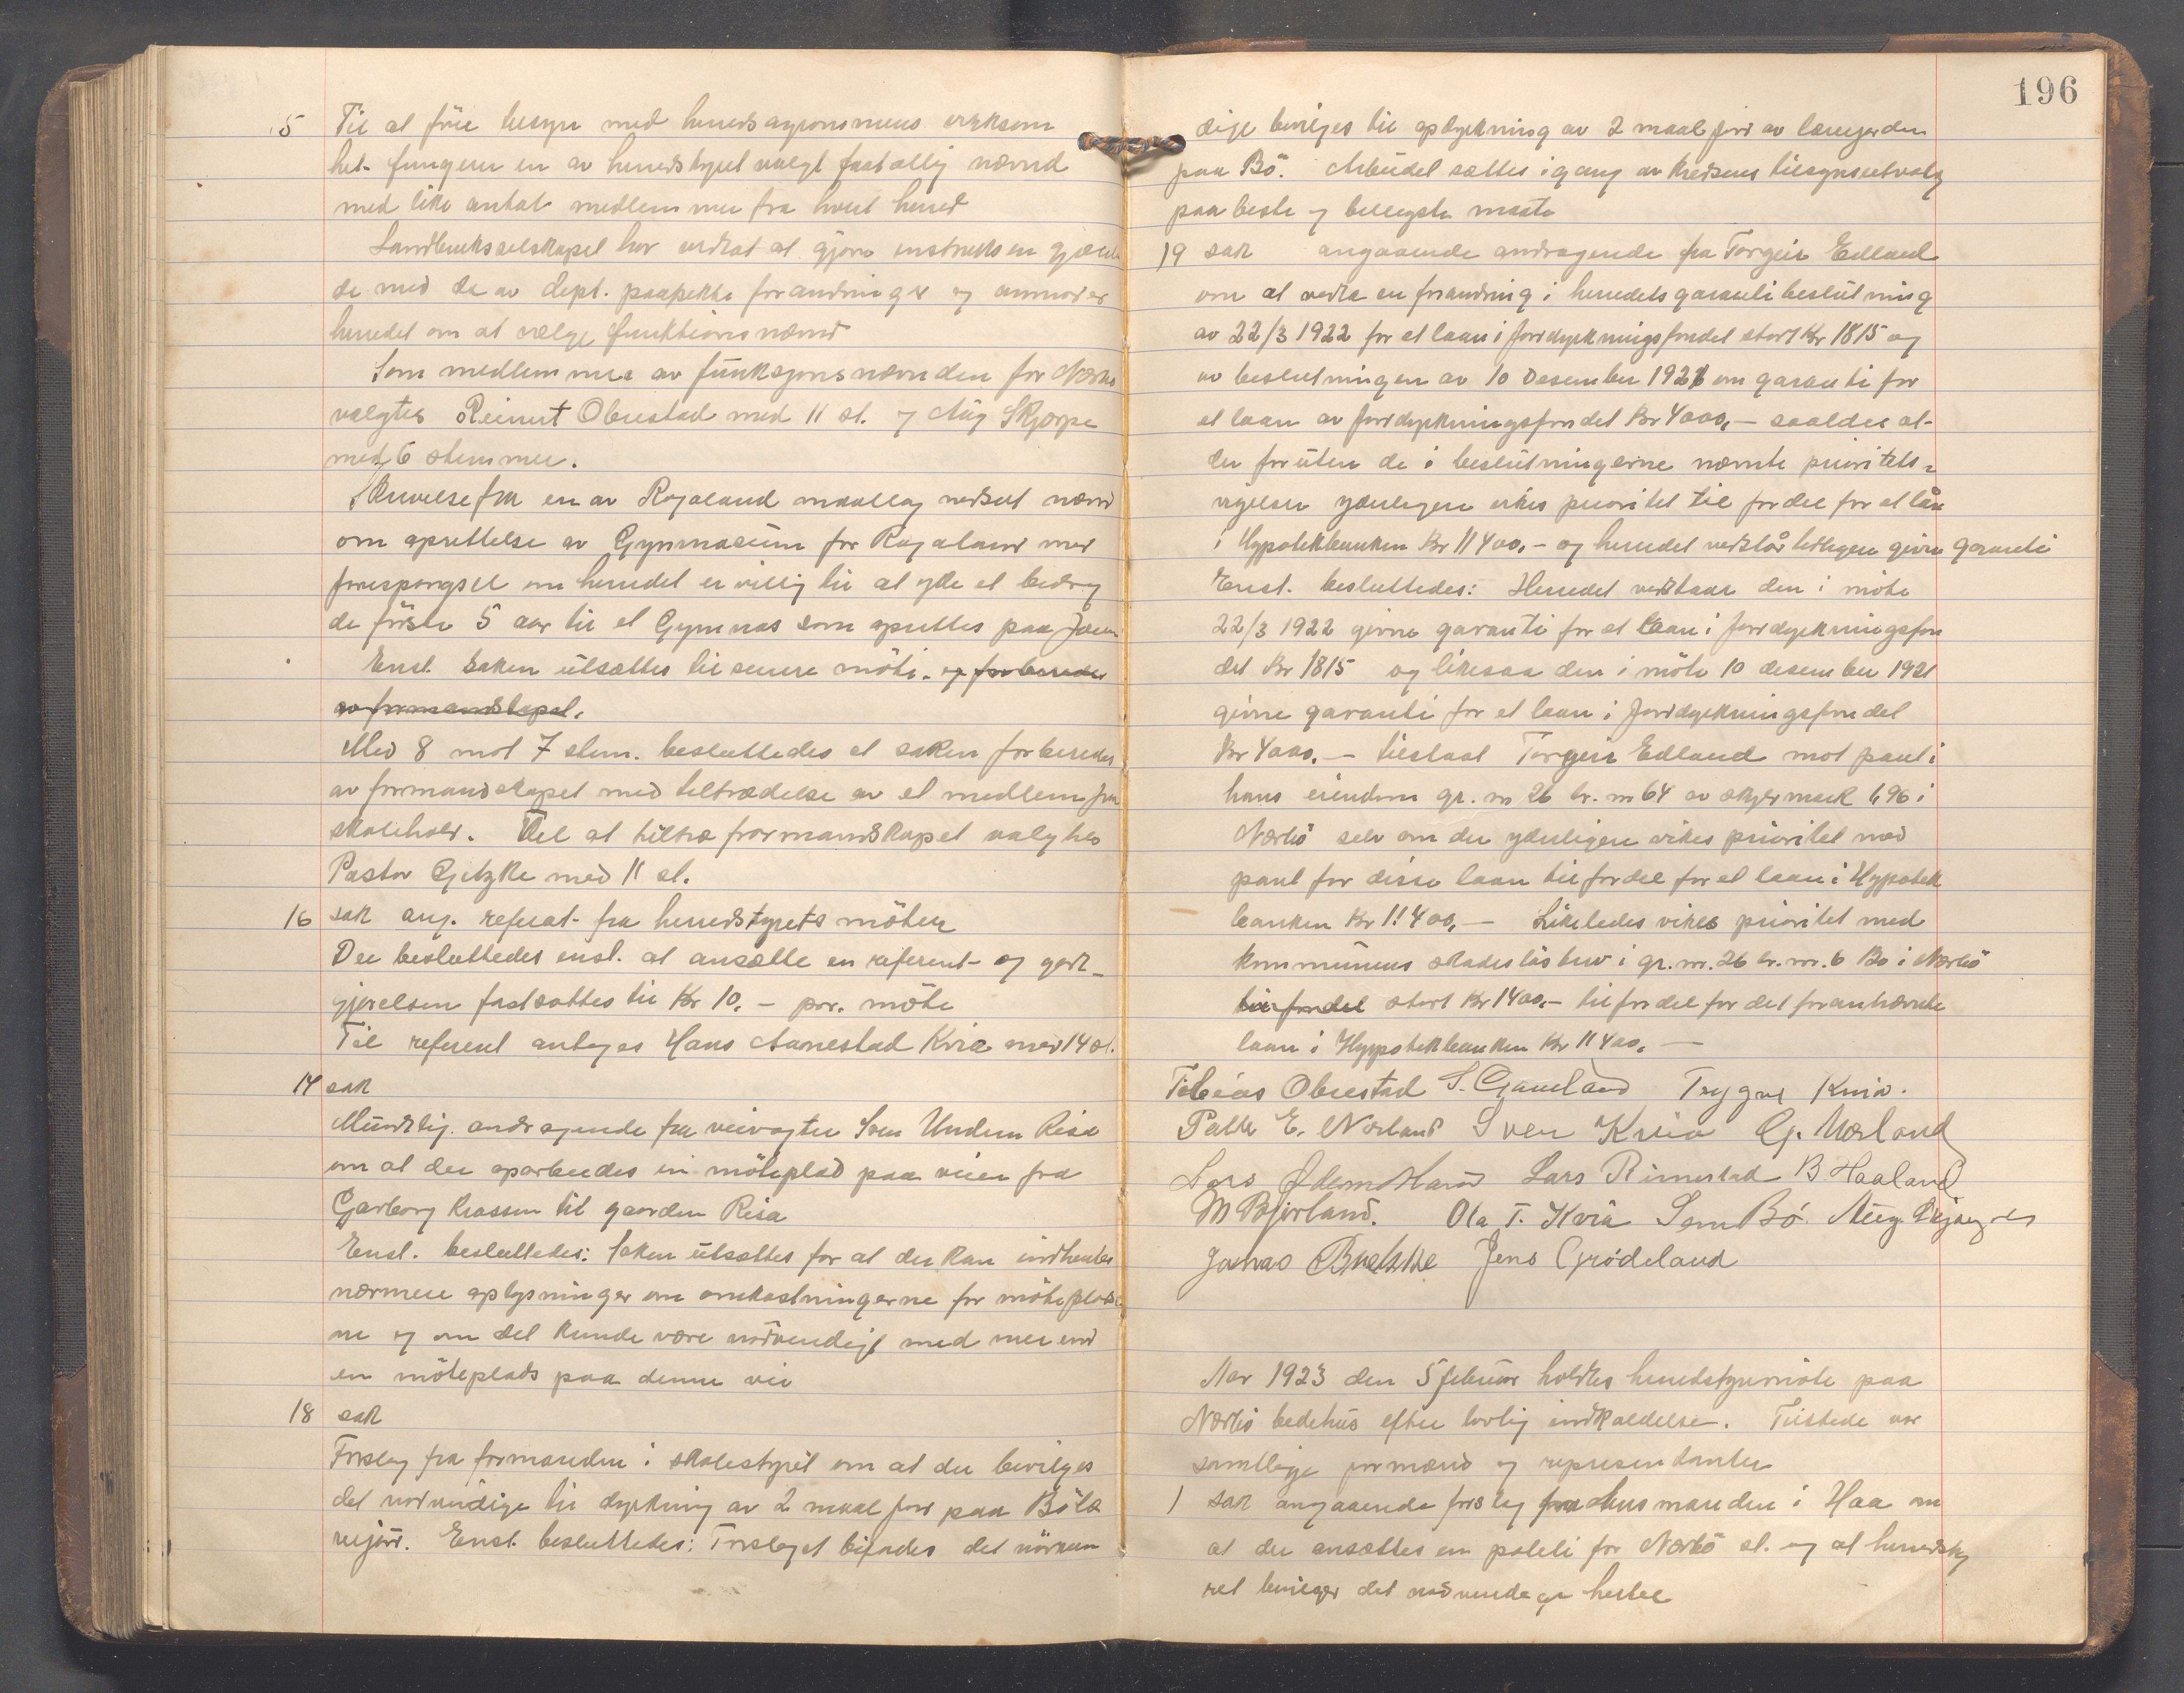 15 Til at føre tilsyn med herredsagronomens virksom
het fungerer en av herredstyret valgt faatallig nævnd
med like antal medlemmer fra hvert herred
Landbruksselskapet har vedtat at gjøre instruksen gjælden
de med de av dept. paapekte forandringer og anmoder
herredet om at vælge funktionsnævnd
Som medlemmer av funksjonsnævnden for Nærbø
valgtes Reinert Obrestad med 11 st. og Aug Skjærpe
med 6 stemmer.
Skrivelse fra en av Rogaland maallag nedsat nævnd
om oprettelse av Gymnasium for Rogaland med
forespørgsel om herredet er villig til at yde et bedrag
de første 5 aar til et Gymnas som oprettes paa Jæren
Enst. Saken utsættes til senere møte. og forberedes
av formandskapet.
Med 8 mot 7 stem. besluttedes at saken forberedes
av formandskapet med tiltrædelse av et medlem fra
skolehold. Til at tiltræ formandskapet valgtes
Pastor Gjetzke med 11 st.
16 sak ang. referat fra herredstyrets møter
Der besluttedes enst. at ansætte en referent og godt-
gjørelsen fastsattes til Kr 10.- pr. møte
Til referent antages Hans Aanestad Kvia med 14 st.
17 sak
Mundtlig andragende fra veivogter Sven Undem Risa
om at der oparbeides en møteplads paa veien fra
Garborg krossen til gaarden Risa
Enst. besluttedes: Saken utsættes for at der kan indhentes
nærmere oplysninger om omkostningerne for møtepladse
ne og om det kunde være nødvendigt med mer end
en møteplads paa denne vei
18 sak
Forslag fra formanden i skolestyret om at der bevilges
det nødvendige til dyrkning av 2 maal jord paa Bø læ
rerjord. Enst. besluttedes: Forslaget bifaldes det nødven
196
dige bevilges til opdyrkning av 2 maal jord av lærerjorden
paa Bø. Arbeidet sættes igang av kredsens tilsynsutvalg
paa beste og billigste maate
19 sak angaaende andragende fra Torgeir Edland
om at vedta en forandring i herredets garantibeslutning
av 22/3 1922 for et laan i Jorddyrkningsfondet stort Kr 1815 og
av beslutningen av 10 Desember 1921 om garanti for
et laan av Jorddyrkningsfondet Kr 4000,- saaledes at
der foruten de i beslutningerne nævnte prioritets-
vigelser yderligere vikes prioritet til fordel for et lån
i Hypotekbanken Kr 11400,- og herredet vedstår tidligere givne garanti
Enst. besluttedes: Herredet vedstaar den i møte
22/3 1922 givne garanti for et laan i Jorddyrkningsfon
det Kr 1815 og likesaa den i møte 10 desember 1921
givne garanti for et laan i Jorddyrkningsfondet
Kr 4000.- tilstaat Torgeir Edland mot pant i
hans eiendom gr. nr 26 br. nr 64 av skyldmark 1,96 i
Nærbø selv om der yderligere vikes prioritet med
pant for disse laan til fordel for et laan i Hypotek
banken Kr 11400,- Likeledes vikes prioritet med
kommunens skadesløsbrev i gr. nr. 26 br. nr. 6 Bø i Nærbø
til fordel stort Kr 1400,- til fordel for det forannævnte
laan i Hyppotekbanken Kr 11400,-
Tobias Obrestad S. Gaueland Trygve Kvia.
Palle E. Norland Sven Kvia G. Norland
Lars Ødemotland Lars Rimestad B Haaland
M Bjorland. Ola T. Kvia Sem Bø. Aug. Skjærpe
Jonas Buchne Jens Grødeland
Aar 1923 den 5 februar holdtes herredstyremøte paa
Nærbø bedehus efter lovlig indkaldelse. Tilstede var
samtlige formænd og representanter
1 sak angaaende forslag fra lensmanden i Haa om
at der ansættes en politi for Nærbø st. og at herredsty
ret bevilger det nødvendige hertil